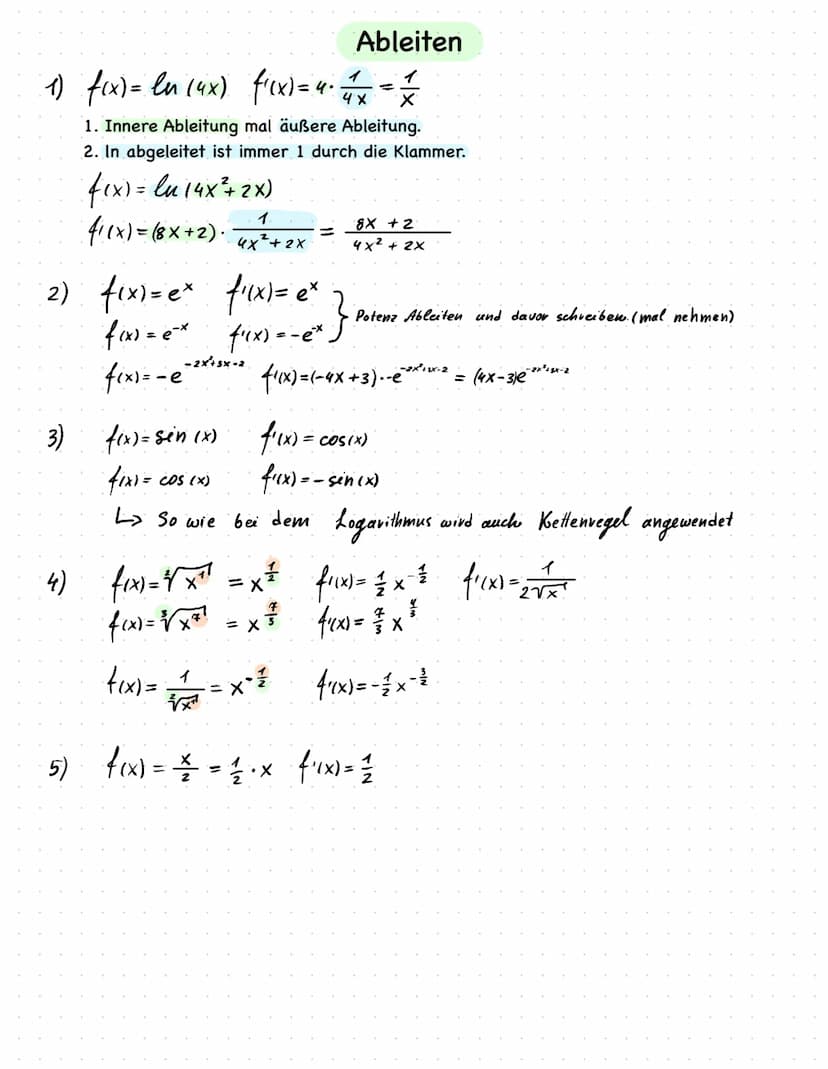 Ableiten
1) f(x) = ln (4x) f'(x) = 4 · 1/4x = 1/x
1. Innere Ableitung mal äußere Ableitung.
2. ln abgeleitet ist immer 1 durch die Klammer.
f(x) = ln (4x² + 2x)
f'(x) = (8x + 2) · 1/(4x² + 2x) = (8x + 2)/(4x² + 2x)
2) f(x) = e^x f'(x) = e^x
} Potenz Ableiten und davor schreiben. (mal nehmen)
f(x) = e^-x f'(x) = -e^-x
f(x) = -e^(-2x²+3x-2) f'(x) = (-4x + 3) · -e^(-2x²+3x-2) = (4x - 3)e^(-2x²+3x-2)
3) f(x) = sin (x) f'(x) = cos (x)
f(x) = cos (x) f'(x) = - sin (x)
↳ So wie bei dem Logarithmus wird auch Kettenregel angewendet
4) f(x) = ²√x¹ = x^(1/2) f'(x) = 1/2 x^(-1/2) f'(x) = 1/(2√x¹)
f(x) = ³√x⁷ = x^(7/3) f'(x) = 7/3 x^(4/3)
f(x) = 1/(²√x¹) = x^(-1/2) f'(x) = -1/2 x^(-3/2)
5) f(x) = x/2 = 1/2 · x f'(x) = 1/2